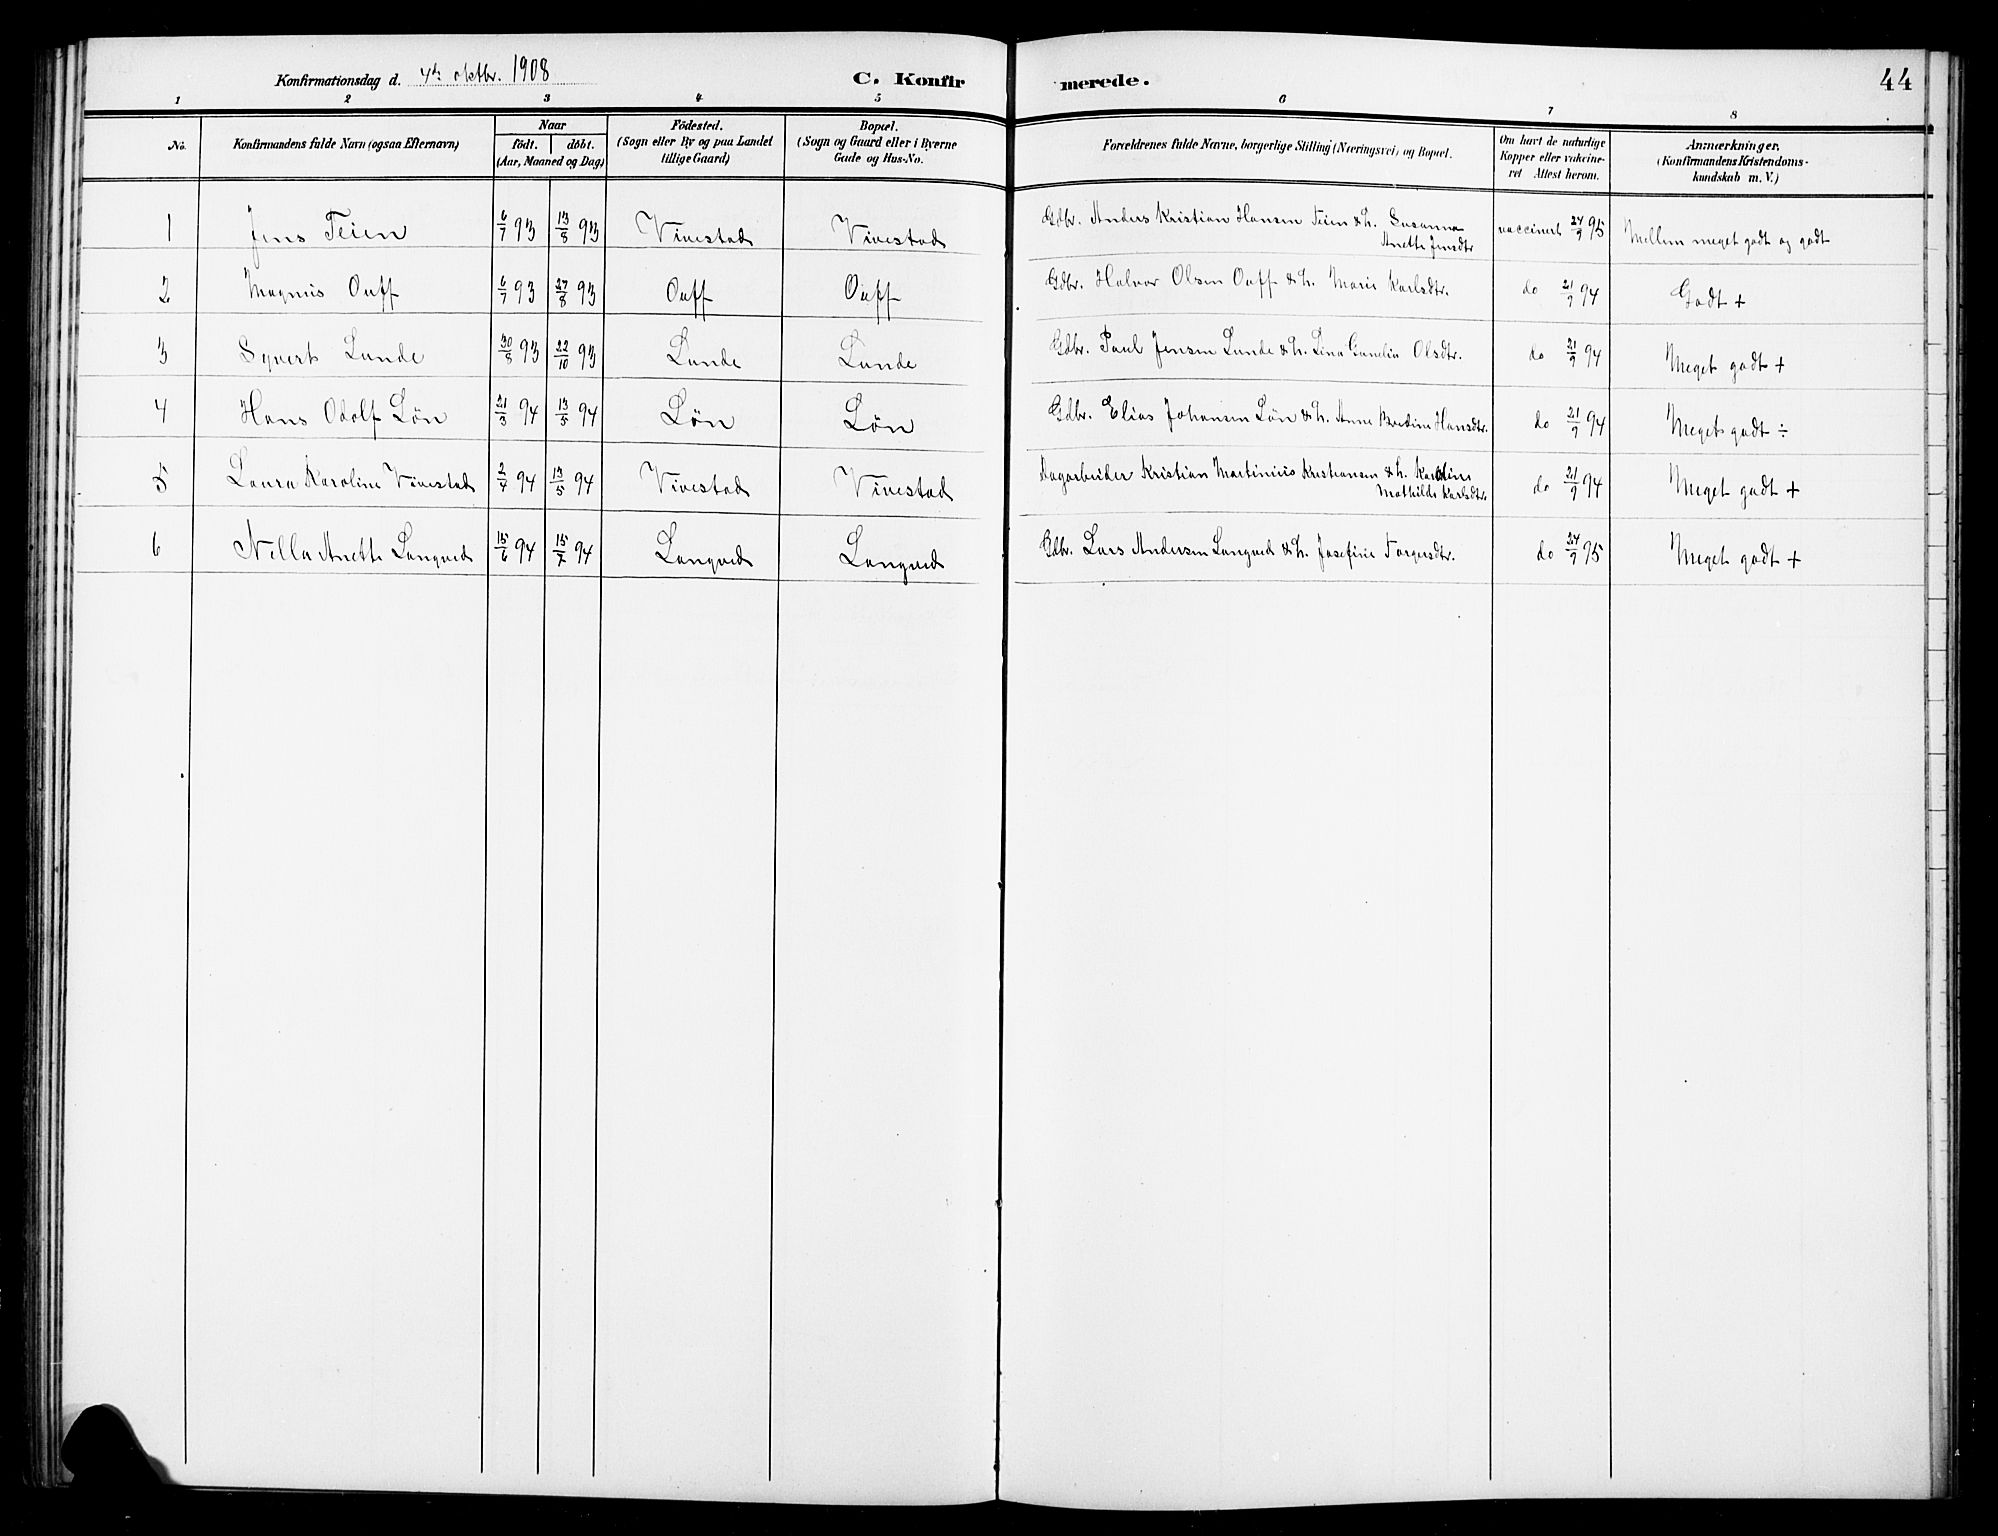 Konfirmationsdag d. 4de oktbr. 1908
C. Konfirmerede. 44
1 2 3 4 5 6 7 8
No. Konfirmandens fulde Navn (ogsaa Efternavn) Naar födt. döbt. (Aar, Maaned og Dag) Födested. (Sogn eller By og paa Landet tillige Gaard) Bopæl. (Sogn og Gaard eller i Byerne Gade og Hus-No. Forældrenes fulde Navne, borgerlige Stilling (Næringsvei) og Bopæl. Om havt de naturlige Kopper eller vakcineret Attest herom. Anmærkninger. (Konfirmandens Kristendomskundskab m. V.)
1 Jens Teien 6/7 93 13/8 93 Vivestad Vivestad Gdbr. Anders Kristian Hansen Teien & h. Susanna Anette Jensdtr vaccinert 24/9 95 Mellem meget godt og godt
2 Magnus Ouff 6/7 93 27/8 93 Ouff Ouff Gdbr. Halvor Olsen Ouff & h. Marie Karlsdtr. do 21/9 94 Godt +
3 Syvert Lunde 30/8 93 22/10 93 Lunde Lunde Gdbr. Paul Jensen Lunde & h. Lina Gunelia Olsdtr. do 21/9 94 Meget godt +
4 Hans Odolf Løn 21/3 94 13/5 94 Løn Løn Gdbr. Elias Johansen Løn & h. Anne Bredine Hansdtr. do 21/9 94 Meget godt ÷
5 Laura Karoline Vivestad 2/4 94 13/5 94 Vivestad Vivestad Dagarbeider Kristian Martinius Kristiansen & h. Karoline Mathilde Karlsdtr. do 21/9 94 Meget godt +
6 Nella Anette Langved 15/6 94 15/7 94 Langved Langved Gdbr. Lars Andersen Langved & h. Josefine Torgersdtr. do 24/9 95 Meget godt +